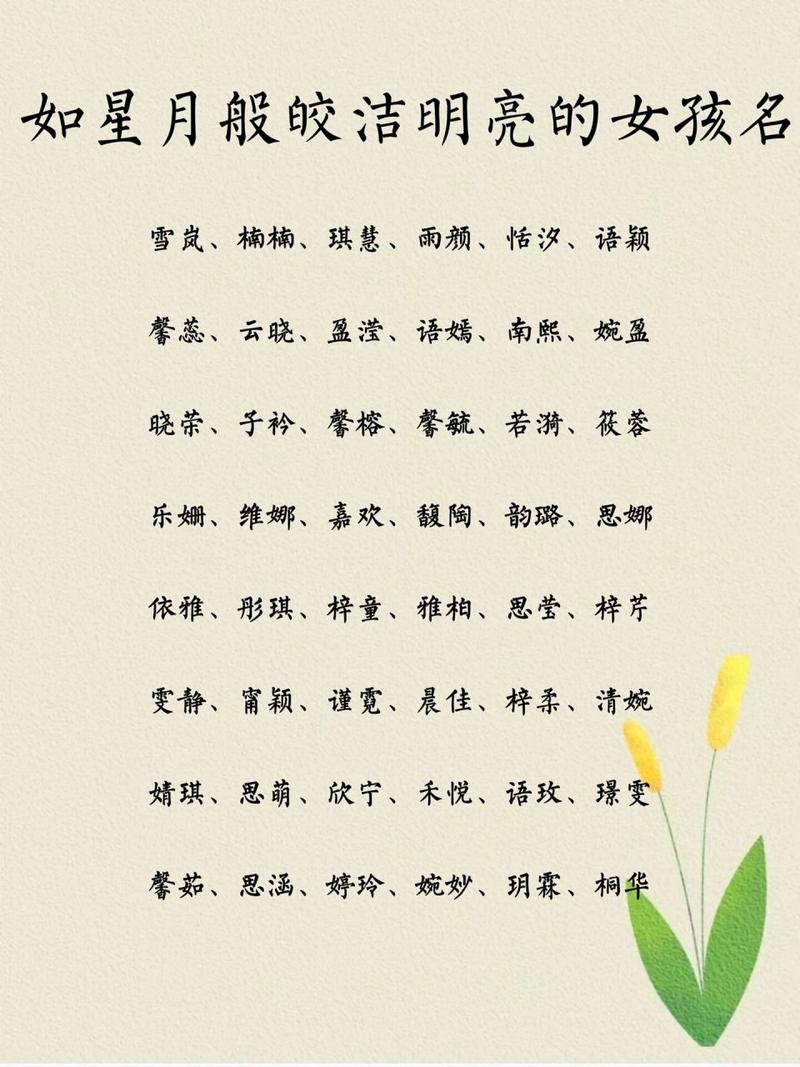 如星月般皎洁明亮的女孩名
雪岚、楠楠、琪慧、雨颜、恬汐、语颖
馨蕊、云晓、盈滢、语嫣、南熙、婉盈
晓荣、子衿、馨榕、馨毓、若漪、筱蓉
乐姗、维娜、嘉欢、馥陶、韵璐、思娜
依雅、彤琪、梓童、雅柏、思莹、梓芹
雯静、甯颖、谨霓、晨佳、梓柔、清婉
婧琪、思萌、欣宁、禾悦、语玫、璟雯
馨茹、思涵、婷玲、婉妙、玥霖、桐华